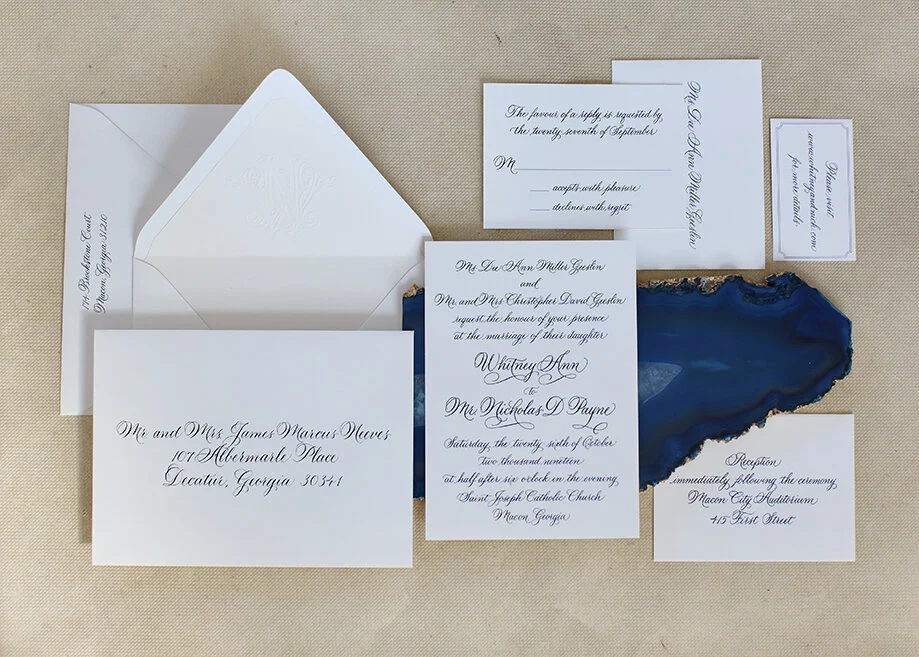 174 Brookstone Court
Macon, Georgia 31210
Mr and Mrs James Marcus Reeves
107 Albermarle Place
Decatur, Georgia 30341
Ms Du Ann Miller Geeslin
and
Mr. and Mrs Christopher David Geeslin
request the honour of your presence
at the marriage of their daughter
Whitney Ann
to
Mr. Nicholas D Payne
Saturday, the twenty sixth of October
two thousand nineteen
at half after six o'clock in the evening
Saint Joseph Catholic Church
Macon Georgia
The favour of a reply is requested by
the twenty seventh of September
M
accepts with pleasure
declines with regret
Ms Du Ann Miller Geeslin
Please visit
www.whitneyandnick.com
for more details
Reception
immediately following the ceremony
Macon City Auditorium
415 First Street